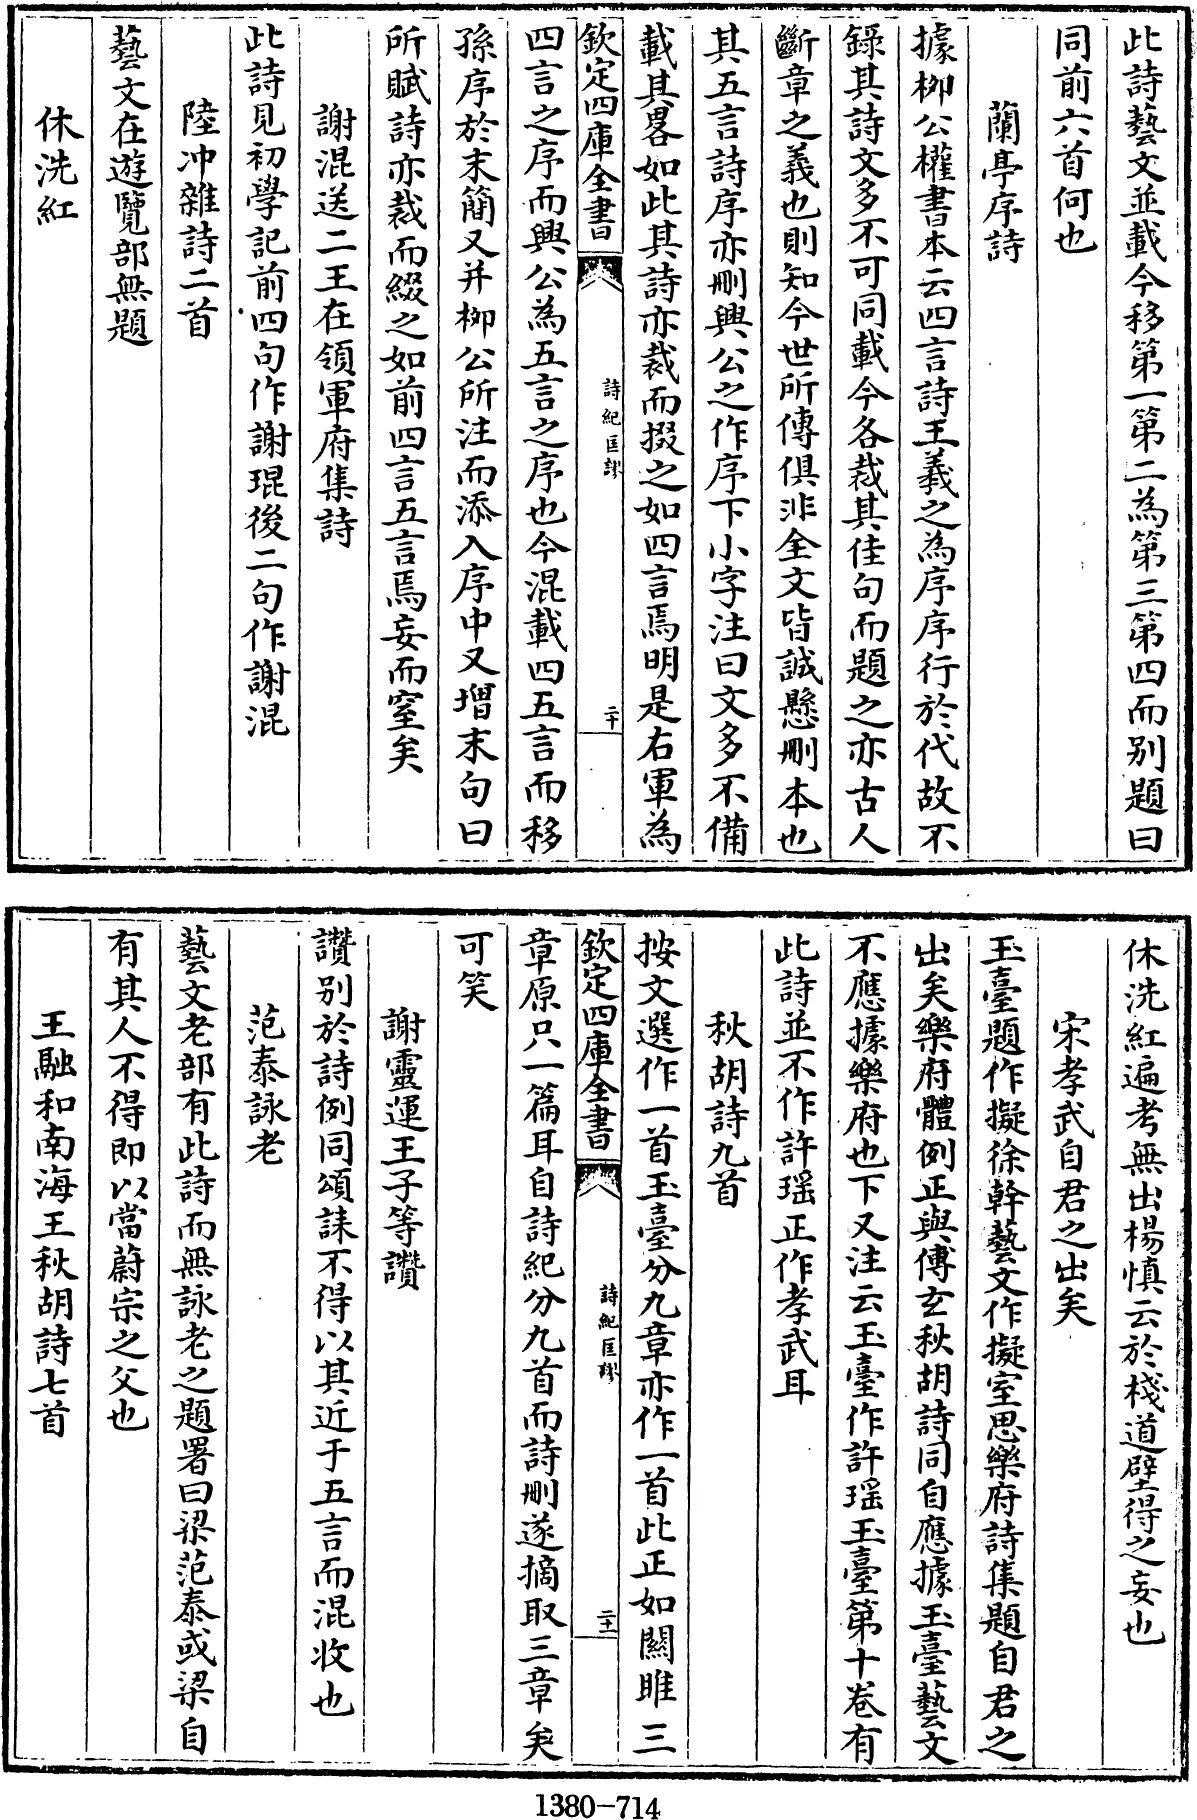 此詩藝文並載今移第一第二為第三第四而别題曰
同前六首何也
蘭亭序詩
據柳公權書本云四言詩王羲之為序序行於代故不
錄其詩文多不可同載今各裁其佳句而題之亦古人
斷章之義也則知今世所傳俱非全文皆誠懸刪本也
其五言詩序亦刪興公之作序下小字注曰文多不備
載其畧如此其詩亦裁而掇之如四言焉明是右軍為
欽定四庫全書
詩紀匡謬
二十
四言之序而興公為五言之序也今混載四五言而移
孫序於末簡又并柳公所注而添入序中又增末句曰
所賦詩亦裁而綴之如前四言五言焉妄而窒矣
謝混送二王在領軍府集詩
此詩見初學記前四句作謝琨後二句作謝混
陸冲雜詩二首
藝文在遊覽部無題
休洗紅
休洗紅遍考無出楊慎云於棧道壁得之妄也
宋孝武自君之出矣
玉臺題作擬徐幹藝文作擬室思樂府詩集題自君之
出矣樂府體例正與傅玄秋胡詩同自應據玉臺藝文
不應據樂府也下又注云玉臺作許瑶玉臺第十卷有
此詩並不作許瑶正作孝武耳
秋胡詩九首
按文選作一首玉臺分九章亦作一首此正如關雎三
欽定四庫全書
詩紀匡謬
二十一
章原只一篇耳自詩紀分九首而詩刪遂摘取三章矣
可笑
謝靈運王子等讚
讚别於詩例同頌誄不得以其近于五言而混收也
范泰詠老
藝文老部有此詩而無詠老之題署曰梁范泰或梁自
有其人不得即以當蔚宗之父也
王融和南海王秋胡詩七首
1380-714